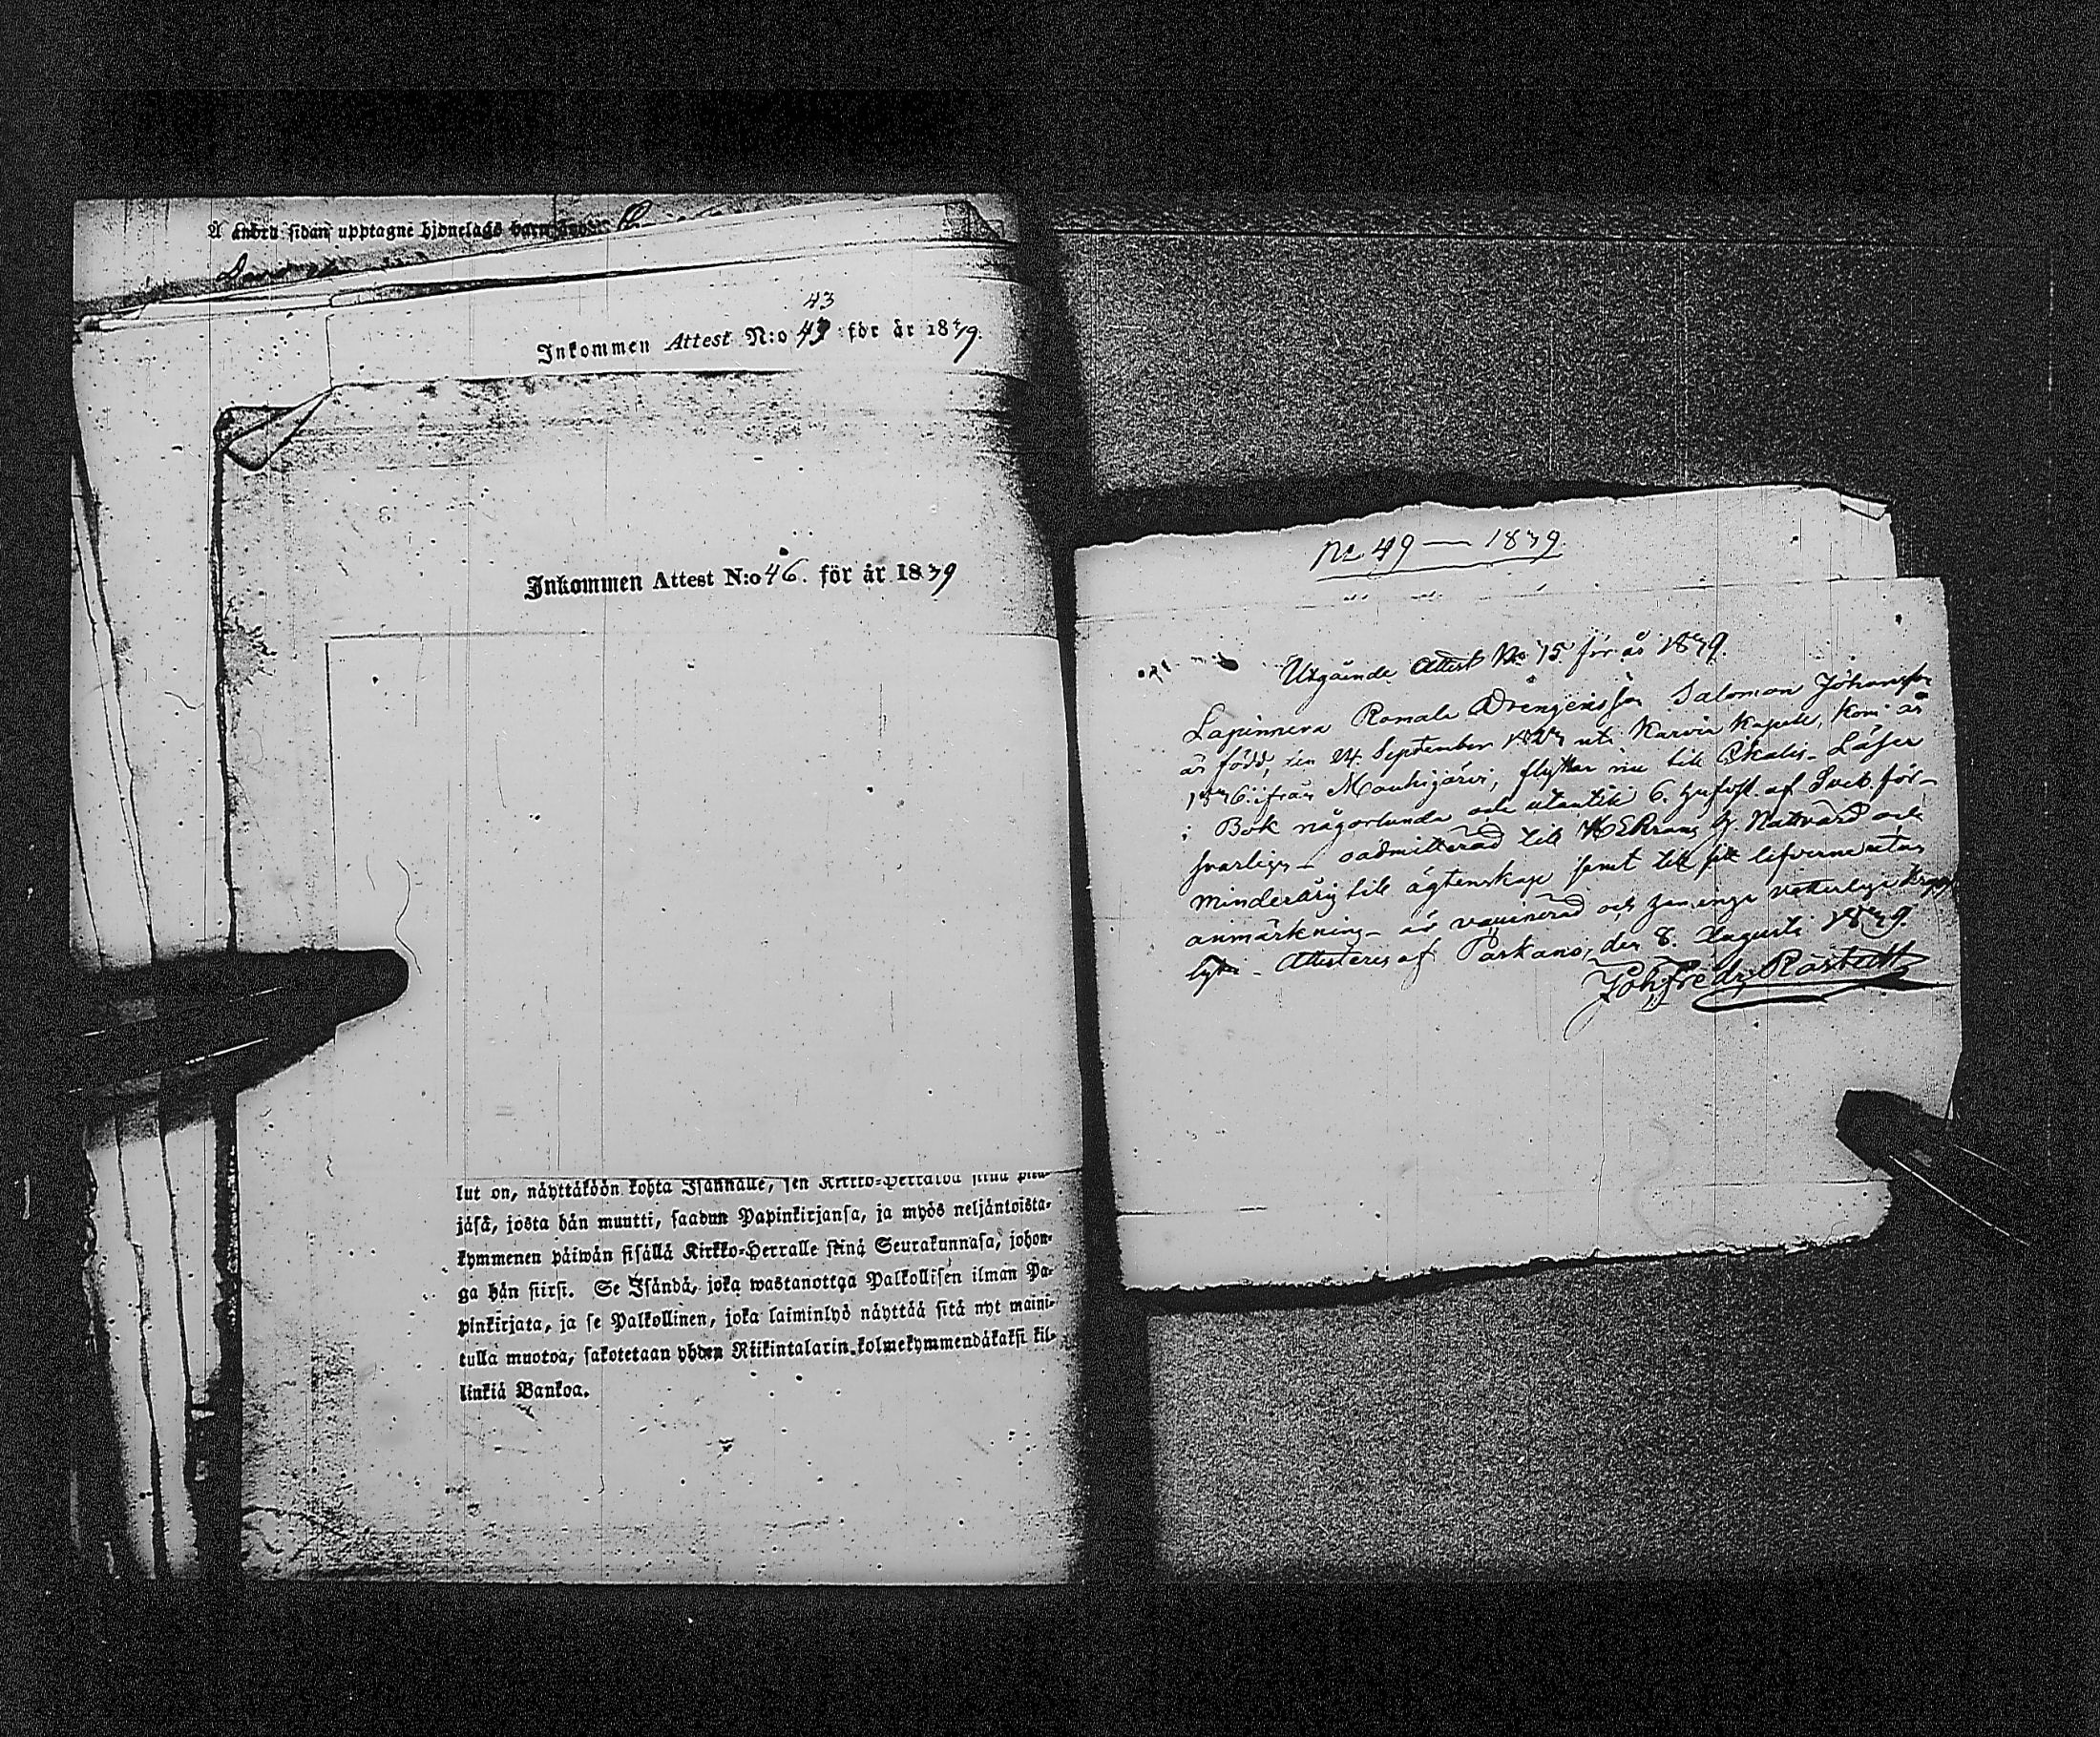 Å andra sidan upptagne hjonelags barn äro:
43
Inkommen Attest N:o 43 för år 1839.
Inkommen Attest N:o 46. för år 1839
lut on, näyttäköön kohta Isännälle, sen Kirkko-Herralda siinä pitä-
jäsä, josta hän muutti, saadun Papinkirjansa, ja myös neljäntoista-
kymmenen päiwän sisällä Kirkko-Herralle siinä Seurakunnasa, johon-
ga hän siirsi. Se Isändä, joka wastanottaa Palkollisen ilman Pa-
pinkirjata, ja se Palkollinen, joka laiminlyö näyttää sitä nyt maini-
tulla muotoa, sakotetaan yhden Riikintalarin kolmekymmendäkaksi kil-
linkiä Bankoa.
No 49 — 1839.
Utgående Attest No 75 för år 1839.
Lapinneva Romala Drängens son Salomon Johansson
är född, den 24. September uti Karvia Kapell, kom år
1836 ifrån Mouhijärvi, flyttar nu till Ikalis - Läser
i Bok någorlunda och utantill 6. af Sveb. för-
svarligen - oadmitterad till H. Nattvard och
minderårig till ägtenskap samt till sitt lefverne utan
anmärkning - är vaccinerad och
lyte - Attesteras af Parkano, den 8. Augusti 1839.
Joh. Fredr. Råstedt